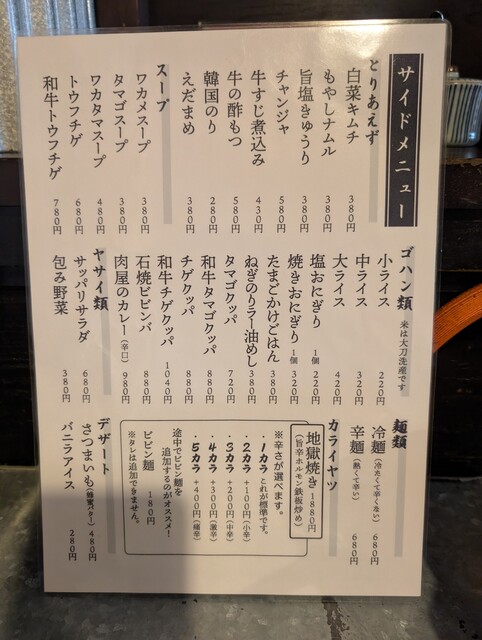 サイドメニュー
とりあえず
白菜キムチ 380円
もやしナムル 380円
旨塩きゅうり 380円
チャンジャ 580円
牛すじ煮込み 430円
牛の酢もつ 580円
韓国のり 280円
えだまめ 380円
スープ
ワカメスープ 380円
タマゴスープ 380円
ワカタマスープ 480円
トウフチゲ 680円
和牛トウフチゲ 780円
ゴハン類 米は大刀洗産です
小ライス 220円
中ライス 320円
大ライス 420円
塩おにぎり 1個 220円
焼きおにぎり 1個 320円
たまごかけごはん 380円
ねぎのりラー油めし 380円
タマゴクッパ 720円
和牛タマゴクッパ 880円
チゲクッパ 880円
和牛チゲクッパ 1040円
石焼ビビンバ 880円
肉屋のカレー(辛口) 980円
ヤサイ類
サッパリサラダ 680円
包み野菜 380円
麺類
冷麺(冷たくて辛くない) 680円
辛麺(熱くて辛い) 680円
カライヤツ
地獄焼き 1880円
(旨辛ホルモン鉄板炒め)
※辛さが選べます。
・1カラ これが標準です。
・2カラ +100円(小辛)
・3カラ +200円(中辛)
・4カラ +300円(激辛)
・5カラ +400円(痛辛)
途中でビビン麺を
追加するのがオススメ!
ビビン麺 180円
※タレは追加できません。
デザート
さつまいも(蜂蜜バター) 480円
バニラアイス 280円